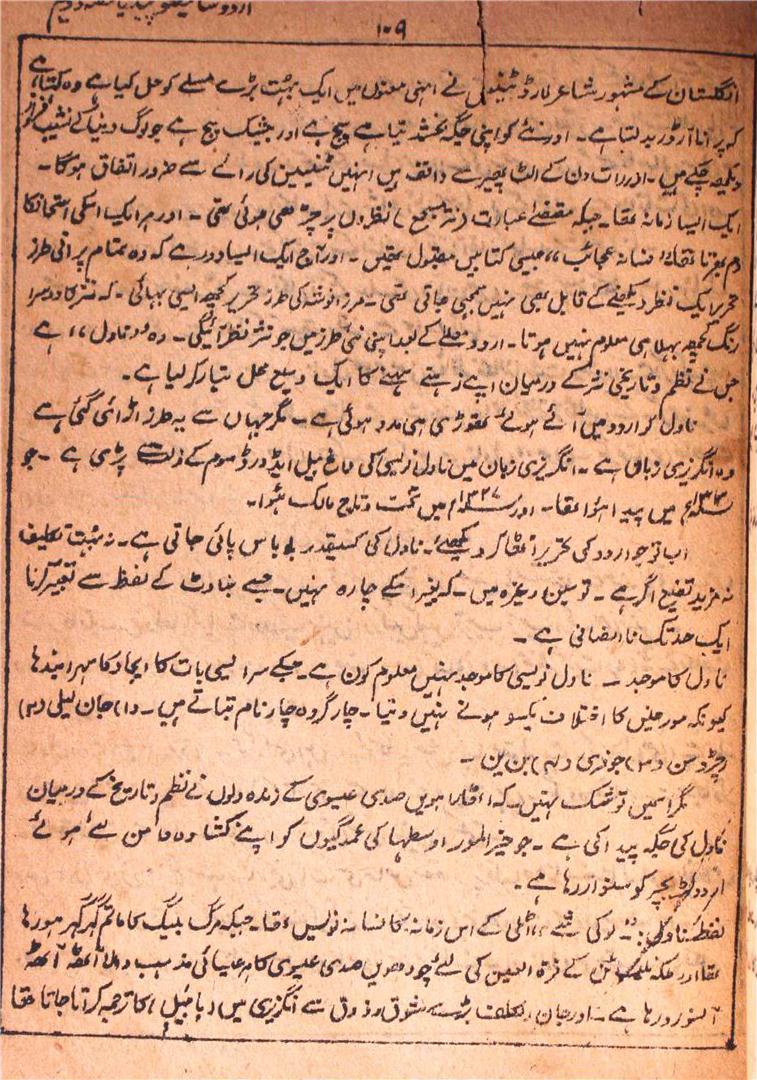 اردو سائیکلوپیڈیا حصہ دوم
۱۰۹
انگلستان کے مشہور شاعر لارڈ ٹینیسن نے انہی معنوں میں ایک بہت بڑے مسلے کو حل کیا ہے وہ کہتا ہے
کہ پرانا آرڈر بدلتا ہے۔ اور نئے کو اپنی جگہ بخشدیتا ہے سچ ہے اور بیشک سچ ہے جو لوگ دنیا کے نشیب فراز
دیکھ چکے ہیں۔ اور رات دن کے الٹ پھیر سے واقف ہیں انہیں ٹینیسن کی رائے سے ضرور اتفاق ہوگا۔
ایک ایسا زمانہ تھا۔ جبکہ مقفےٰ عبارت (نثر مسجع) نظروں پر چڑھی ہوئی تھی۔ اور ہر ایک اسکی استحانکا
دم بھرتا تھا۔ فسانہ عجائب،، جیسی کتابیں مقبول تھیں۔ اور آج ایک ایسا دور ہے کہ وہ تمام پرانی طرز
تحریر ایک نظر دیکھنے کے قابل بھی نہیں سمجھی جاتی تھی۔ مرزا نوشہ کی طرز تحریر کچھ ایسی بھائی۔ کہ نثر کا دوسرا
رنگ کچھ بھلا ہی معلوم نہیں ہوتا۔ اردو معلےٰ کے بعد اپنی نئی طرز میں جو نثر نظر آئیگی۔ وہ ،،ناول،، ہے
جس نے نظم و تاریخی نثر کے درمیان اپنے رہنے سہنے کا ایک وسیع محل تیار کر لیا ہے۔
ناول کو اردو میں آئے ہوئے تھوڑی ہی مدد ہوئی ہے۔ مگر جہاں سے یہ طرز اڑائی گئی ہے
وہ انگریزی زبان ہے۔ انگریزی زبان میں ناول نویسی کی داغ بیل ایڈورڈ سوم کے وقت پڑی ہے۔ جو
۱۳۱۲ء میں پیدا ہوا تھا۔ اور ۱۳۲۷ء میں تخت و تاج مالک ہوا۔
اب تو جو اردو کی تحریر اٹھا کر دیکھئے۔ ناول کی کسیقدر بو باس پائی جاتی ہے۔ نہ بہت تکلیف
نہ مزید تفنیع اگر ہے۔ تو سین وغیرہ میں۔ کہ بغیر اسکے چارہ نہیں۔ جسے بناوٹ کے لفظ سے تعبیر کرنا
ایک حد تک ناانصافی ہے۔
ناول کا موجد ۔ ناول نویسی کا موجد نہیں معلوم کون ہے۔ جسکے سر ایسی بات کا ایجاد کا سہرا بندھا
کیونکہ مورخین کا اختلاف یکسو ہونے نہیں دیتا۔ چار گروہ چار نام بتاتے ہیں۔ (۱) جان لیلی (۲)
رچرڈسن (۳) جوفری (۴) بن ین ۔
مگر اسمیں تو شک نہیں۔ کہ اٹھارہویں صدی عیسوی کے زندہ دلوں نے نظم و تاریخ کے درمیان
ناول کی جگہ پیدا کی ہے۔ جو خیر الامور اوسطہا کی عمدگیوں کو اپنے کشادہ دامن سے ہوئے
اردو لٹریچر کو سنوار رہا ہے۔
لفظ ناول: اٹلی کے اس زمانہ کا فسانہ نویس تھا۔ جبکہ مرگ بلیک کا ماتم گھر گھر ہو رہا
تھا اور ملکہ کے قرۃ العین کی لئے چودھویں صدی عیسوی کا ہر عیسائی مذہب والا آٹھ آٹھ
آنسو رو رہا ہے۔ اور جان وکلف بڑے شوق و ذوق سے انگریزی میں (بائبل) کا ترجمہ کرتا جاتا تھا